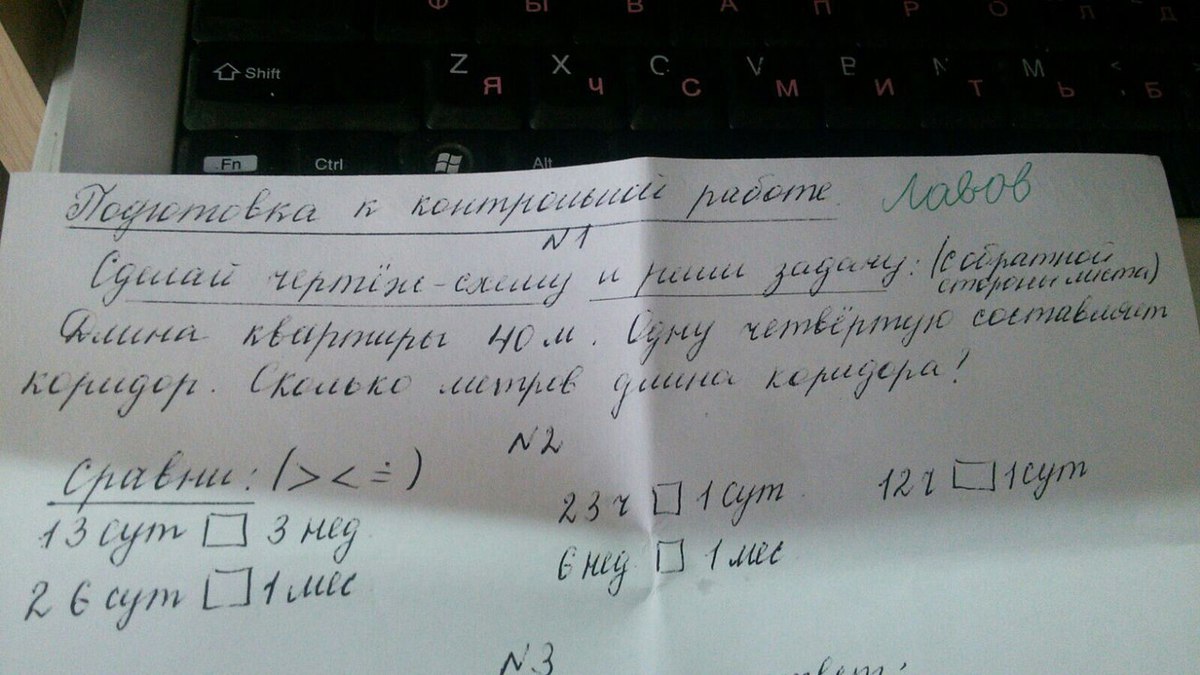 Ф Ы В А П Р О Л Д
Shift Z Я X Ч C С V М B И N Т M Ь < , Б
Fn Ctrl Alt
Подготовка к контрольной работе. Лавов
N1
Сделай чертёж-схему и реши задачу: (с обратной
стороны листа)
Длина квартиры 40 м. Одну четвёртую составляет
коридор. Сколько метров длина коридора?
N2
Сравни: (> < =)
13 сут □ 3 нед 23 ч □ 1 сут 12 ч □ 1 сут
26 сут □ 1 мес 6 нед □ 1 мес
N3